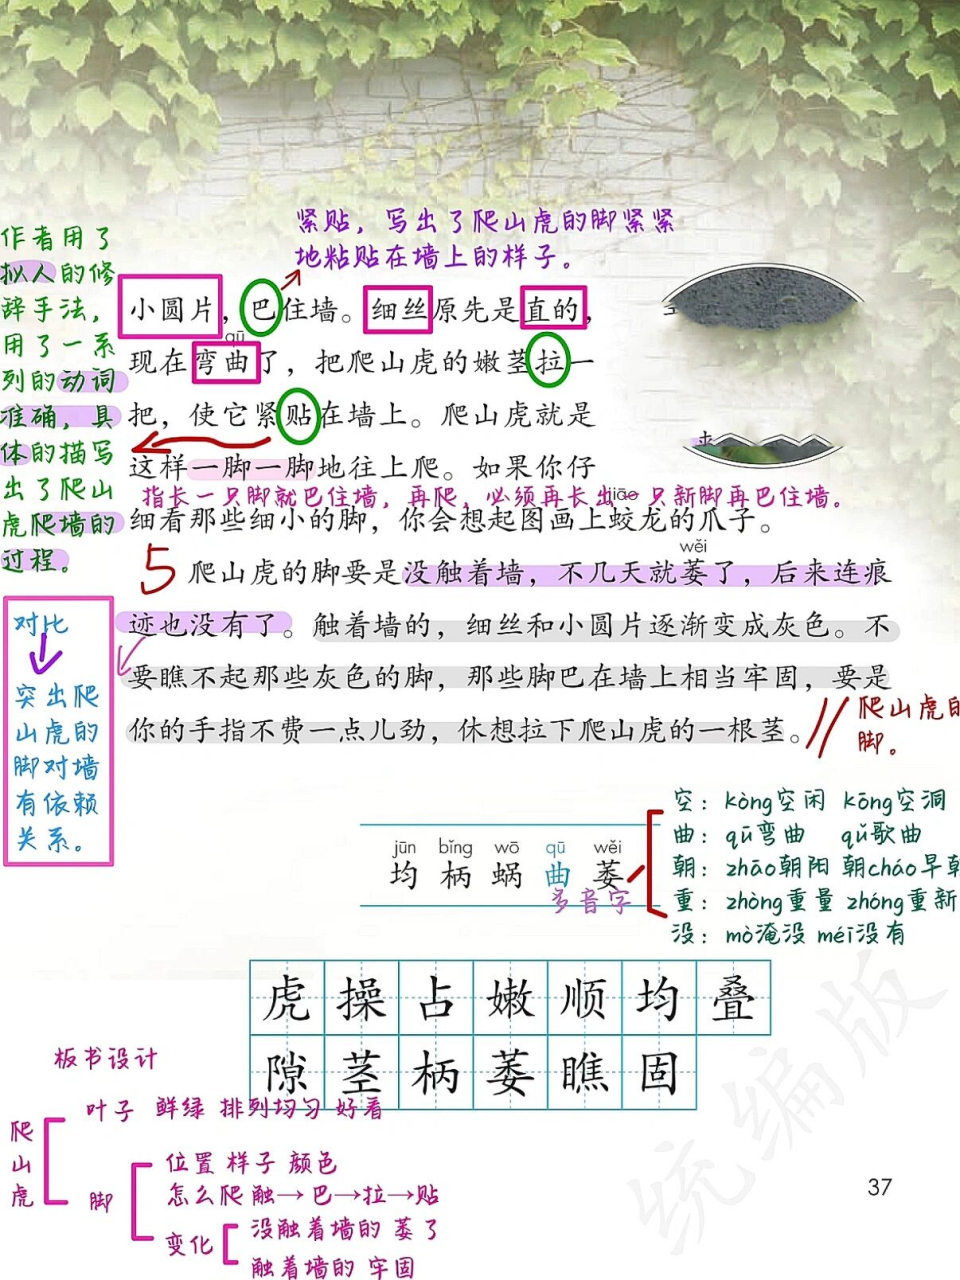 紧贴，写出了爬山虎的脚紧紧
地粘贴在墙上的样子。
作者用了
拟人的修
辞手法，
用了一系
列的动词
准确，具
体的描写
出了爬山
虎爬墙的
过程。
小圆片，巴住墙。细丝原先是直的，
qū
现在弯曲了，把爬山虎的嫩茎拉一
把，使它紧贴在墙上。爬山虎就是
这样一脚一脚地往上爬。如果你仔
指长一只脚就巴住墙，再爬，必须再长出一只新脚再巴住墙。
jiāo
细看那些细小的脚，你会想起图画上蛟龙的爪子。
wěi
5 爬山虎的脚要是没触着墙，不几天就萎了，后来连痕
迹也没有了。触着墙的，细丝和小圆片逐渐变成灰色。不
要瞧不起那些灰色的脚，那些脚巴在墙上相当牢固，要是
你的手指不费一点儿劲，休想拉下爬山虎的一根茎。
爬山虎的
脚。
对比
突出爬
山虎的
脚对墙
有依赖
关系。
jūn bǐng wō qū wěi
均 柄 蜗 曲 萎
多音字
空：kòng空闲 kōng空洞
曲：qū弯曲 qǔ歌曲
朝：zhāo朝阳 朝cháo早朝
重：zhòng重量 zhóng重新
没：mò淹没 méi没有
虎 操 占 嫩 顺 均 叠
隙 茎 柄 萎 瞧 固
板书设计
爬山虎
叶子 鲜绿 排列均匀 好看
脚
位置 样子 颜色
怎么爬 触→巴→拉→贴
变化
没触着墙的 萎了
触着墙的 牢固
37
统编版